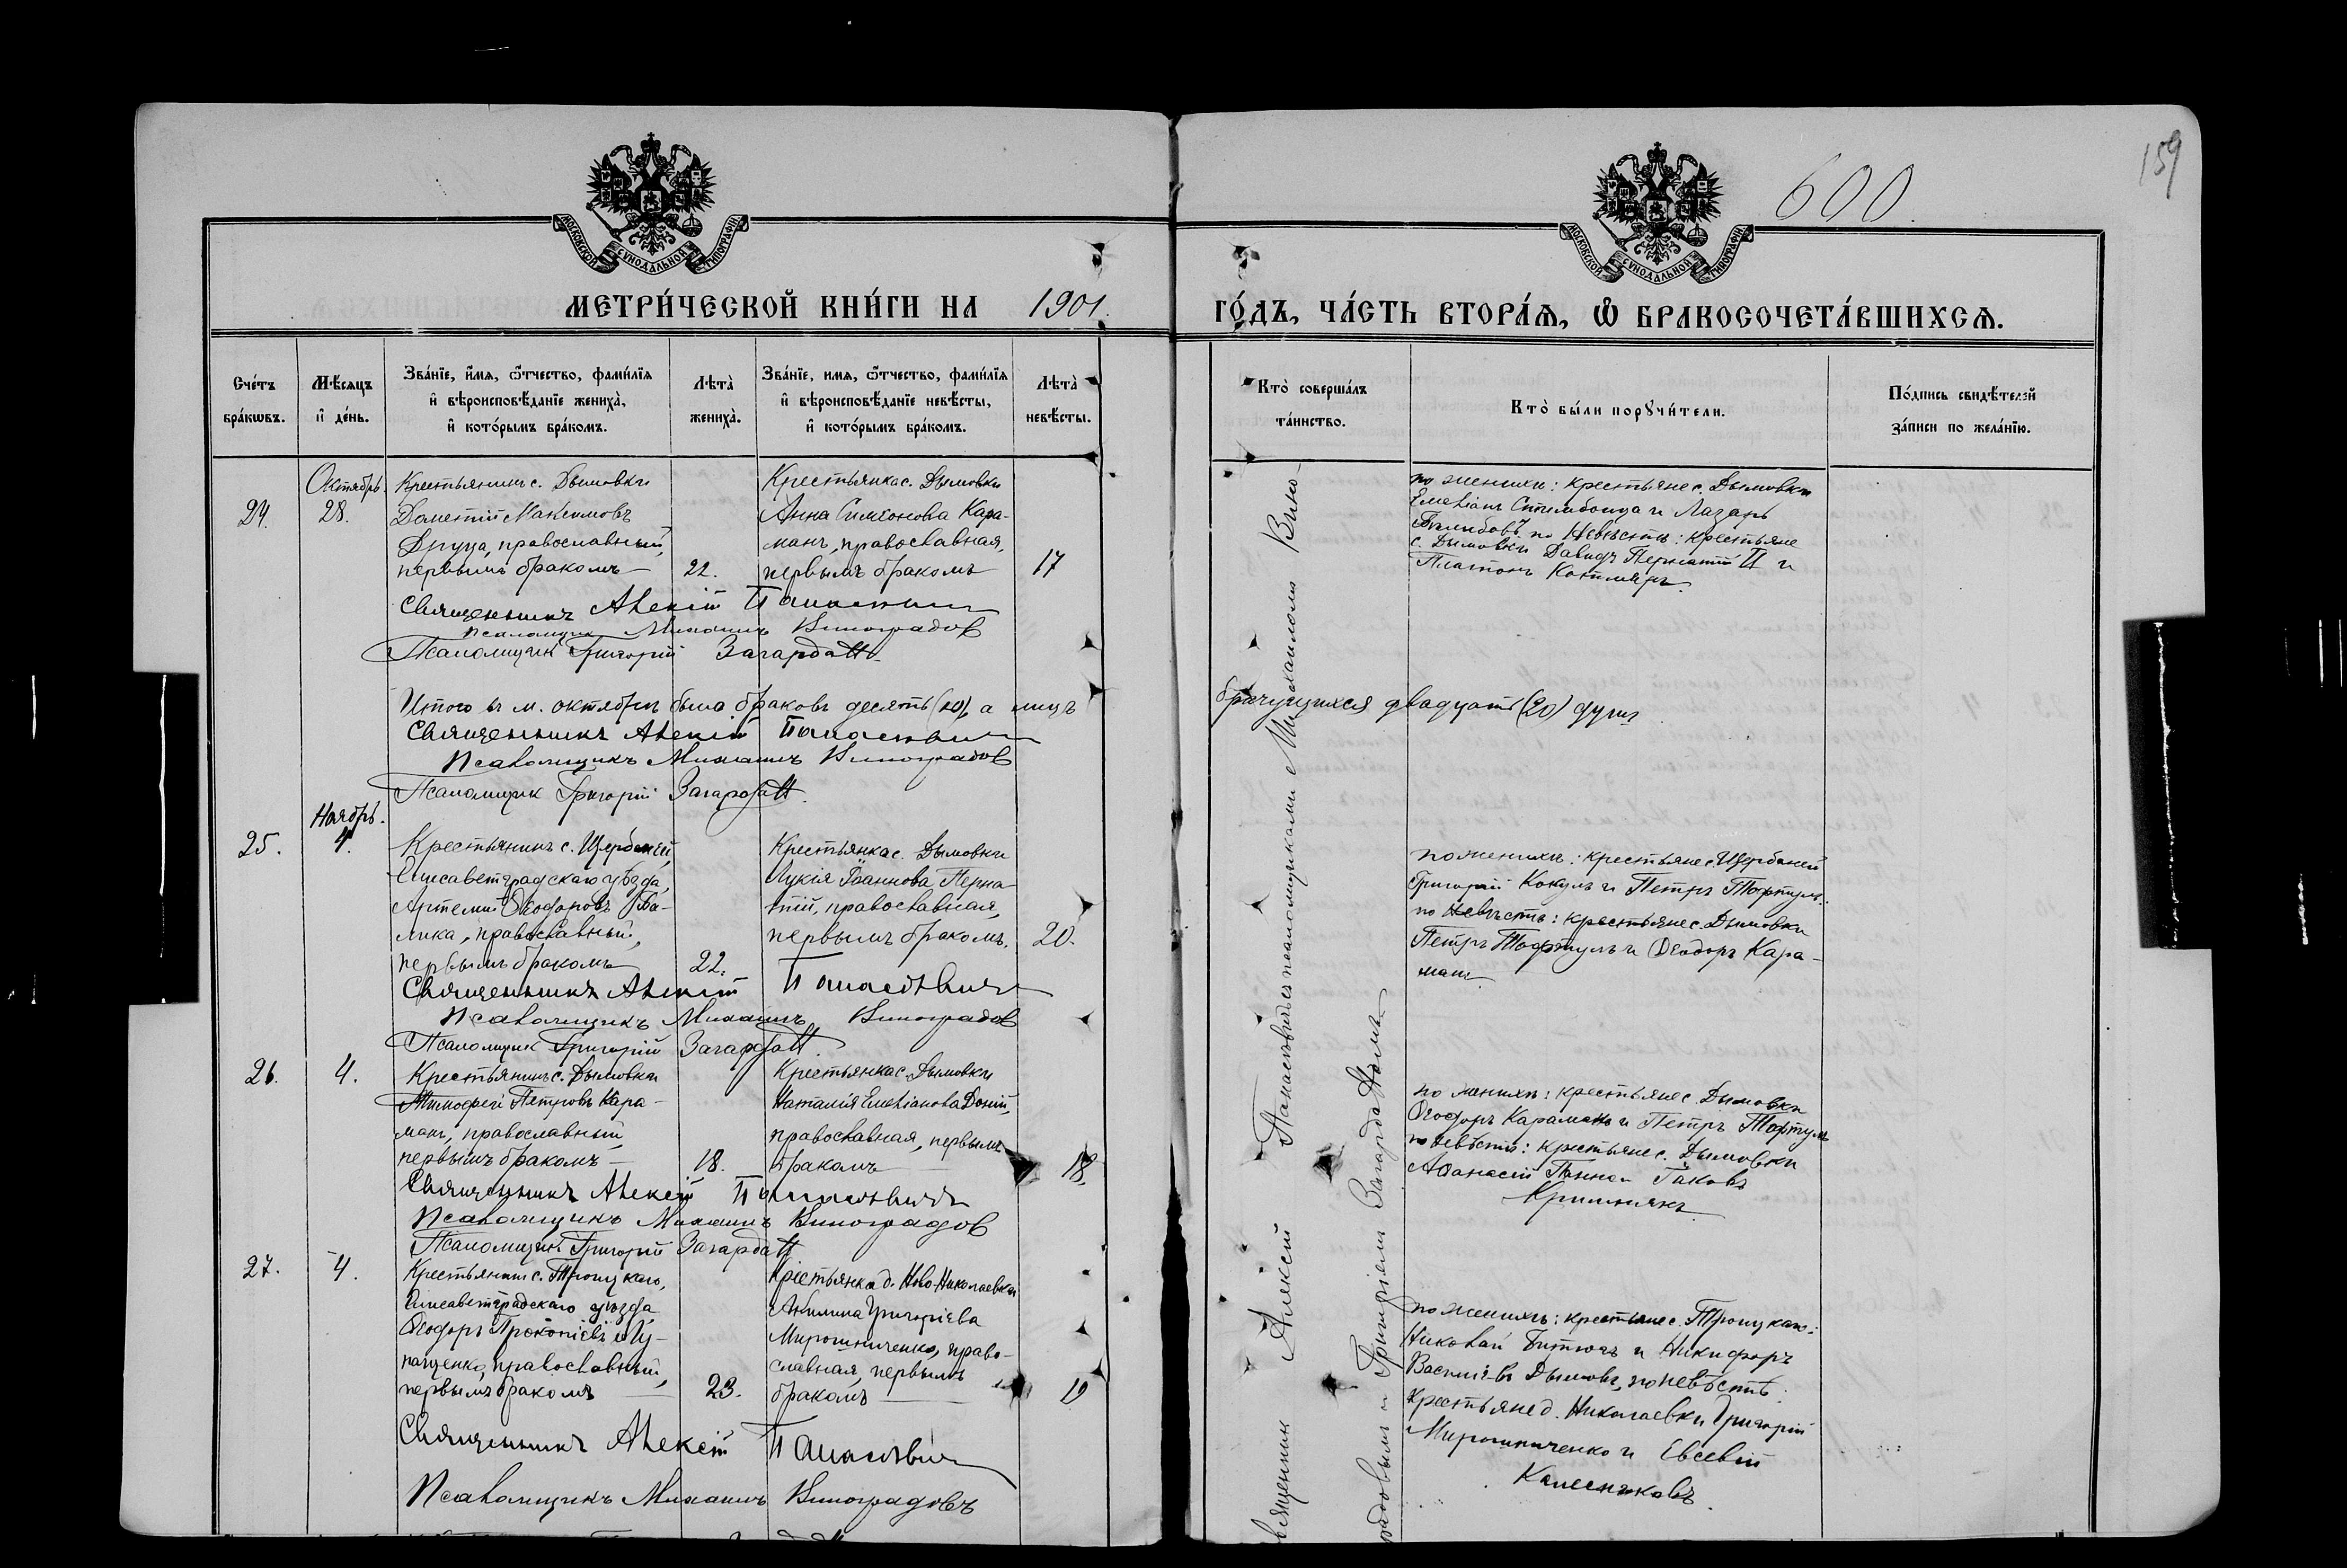 159
600.
МОСКОВСКОЙ СУНОДАЛЬНОЙ ТИПОГРАФІИ
МОСКОВСКОЙ СУНОДАЛЬНОЙ ТИПОГРАФІИ
МЕТРИ́ЧЕСКОЙ КНИ́ГИ НА 1901.
ГО́ДЪ, ЧА́СТЬ ВТОРА́Ѧ, Ѽ БРАКОСОЧЕТА́ВШИХСѦ.
Сче́тъ
бра́кѡвъ.
Мѣ́сѧцъ
и҆ де́нь.
Зва́нїе, и҆́мѧ, ѻ҆́тчество, фами́лїѧ
и҆ вѣроисповѣ́данїе жениха̀,
и҆ кото́рымъ бра́комъ.
Лѣта̀
жениха̀.
Зва́нїе, имѧ, ѻ҆́тчество, фами́лїѧ
и҆ вѣроисповѣ́данїе невѣ́сты,
и҆ кото́рымъ бра́комъ.
Лѣта̀
невѣ́сты.
Кто̀ соверша́лъ
та́инство.
Кто̀ бы́ли порꙋчи́тели.
По́дпись свидѣ́телей
за́писи по жела́нїю.
24.
Октябрь.
28.
Крестьянинъ с. Дымовки
Дометій Максимовъ
Друца, православный,
первымъ бракомъ
22.
Крестьянка с. Дымовки
Анна Симеонова Кара-
манъ, православная,
первымъ бракомъ
17
по женихѣ: крестьяне с. Дымовки
Емеліанъ и Лазарь
по Невѣстѣ: крестьяне
с. Дымовки Давидъ Пернатій и
Платонъ Котляръ.
Священникъ Алексій Панасевичъ
псаломщикъ Михаилъ Виноградов
Псаломщикъ Григорій Загародall
Итого въ м. октябрѣ было браковъ десять (10), а лицъ
брачущихся двадцать (20) душъ
Священникъ Алексій Панасевичъ
Псаломщикъ Михаилъ Виноградов
Псаломщик Григорій
25.
Ноябрь.
4.
Крестьянинъ с. Щербаней
Елисаветградскаго уѣзда,
Артемій Ѳеодоровъ Ба-
лика, православный,
первымъ бракомъ
22.
Крестьянка с. Дымовки
Лукія Іоаннова Перна-
тій, православная,
первымъ бракомъ.
20.
по женихѣ: крестьяне с. Щербаней
Григорій Кокулъ и Петръ
по невѣстѣ: крестьяне с. Дымовки
Петръ и Ѳеодоръ Кара-
манъ
Священникъ Алексій Панасевичъ
Псаломщикъ Михаилъ Виноградов
Псаломщик Григорій
26.
4.
Крестьянинъ с. Дымовки
Тимофей Петровъ Кара-
манъ, православный,
первымъ бракомъ
18.
Крестьянка с. Дымовки
Наталія Емеліанова Доній,
православная, первымъ
бракомъ
18.
по женихѣ: крестьяне с. Дымовки
Ѳеодоръ Караманъ и Петръ
по невѣстѣ: крестьяне с. Дымовки
Аѳанасій Іаковъ
Священникъ Алексій Панасевичъ
Псаломщикъ Михаилъ Виноградов
Псаломщикъ Григорій
27.
4.
Крестьянинъ с. Троицкаго,
Елисаветградскаго уѣзда
Ѳеодоръ Прокопіевъ Лу-
паценко, православный,
первымъ бракомъ
23.
Крестьянка д. Ново-Николаевки
Акилина Григоріева
Мирошниченко, право-
славная, первымъ
бракомъ
19
по женихѣ: крестьяне с. Троицкаго:
Николай и Никифоръ
Василіевъ Дымовъ, по невѣстѣ:
крестьяне д. Николаевки Григорій
Мирошниченко и Евсевій
Калесниковъ
Священникъ Алексій Панасевичъ
Псаломщикъ Михаилъ Виноградовъ
Священникъ Алексій Панасевичъ съ псаломщиками Михаиломъ Вино-
градовымъ и Григоріемъ